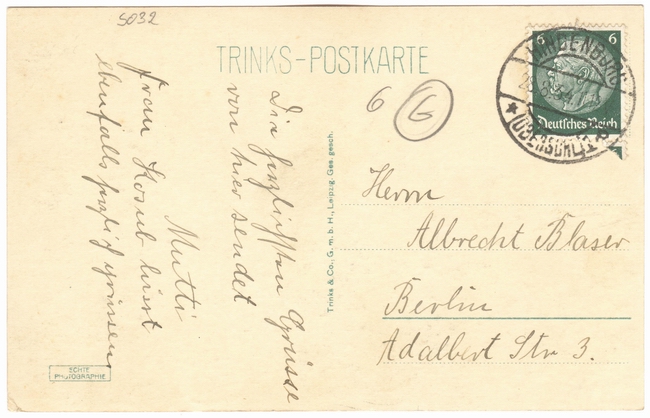 5032
TRINKS-POSTKARTE
6 6
Deutsches Reich
HINDENBURG
(OBERSCHL) 1
6 G
Die herzlichsten Grüsse
von hier sendet
Mutti
Frau Kosub lässt
ebenfalls herzlich grüssen
Trinks & Co., G. m. b. H., Leipzig. Ges. gesch.
Herrn
Albrecht Blaser
Berlin
Adalbert Str 3.
ECHTE
PHOTOGRAPHIE